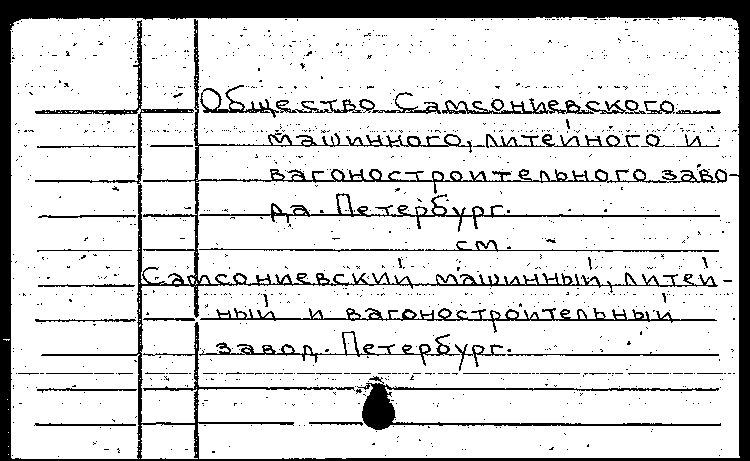 Общество Самсониевского
машинного, литейного и
вагоностроительного заво-
да. Петербург.
см.
Самсониевский машинный, литей-
ный и вагоностроительный
завод. Петербург.